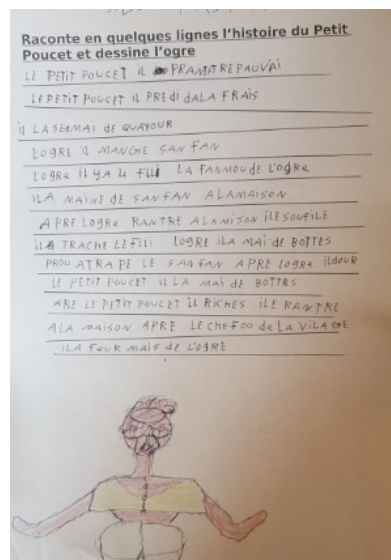 Raconte en quelques lignes l'histoire du Petit
Poucet et dessine l'ogre
LE PETIT POUCET IL PRAMITREPAUVAI
LE PETIT POUCET IL PREDI DALA FRAIS
iL LA SEMAI DE QUAYOUR
LOGRE IL MANGE SAN FAN
LOGRE IL YA 4 FLLI LA FANMOU DE L'OGRE
ILA MAINE DE SAN FAN ALAMAISON
APRE LOGRE RANTRE ALAMISON ILE SOUFILE
iLA TRACHE LEFLLI LOGRE ILA MAI DE BOTTES
PROU ATRAPE LE SANFAN APRE LOGRE ILDOUR
LE PETIT POUCET IL LA MAI DE BOTTES
ARE LE PETIT POUCET IL RICHES ILE RANTRE
ALA MAISON APRE LE CHEFOO de LA ViLAGE
ILA FEUR MAIS DE L'OGRE